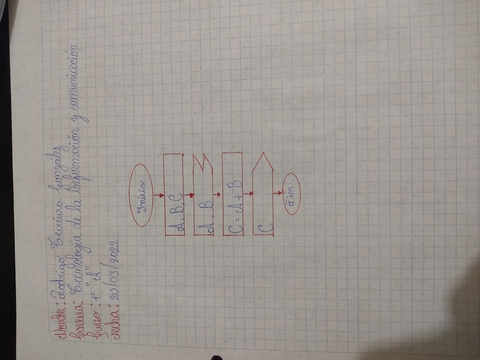 Nombre: Rodrigo Ferreira González
Carrera: Tecnología de la Información y comunicación
Curso: 1º "A"
Fecha: 20/03/2022
Inicio
A, B, C
A, B
C = A + B
C
Fin